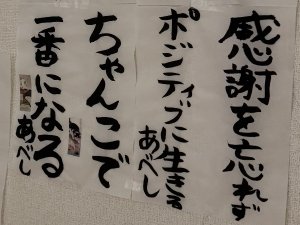 感謝を忘れず
ポジティブに生きる
あべし
ちゃんこで
一番になる
あべし